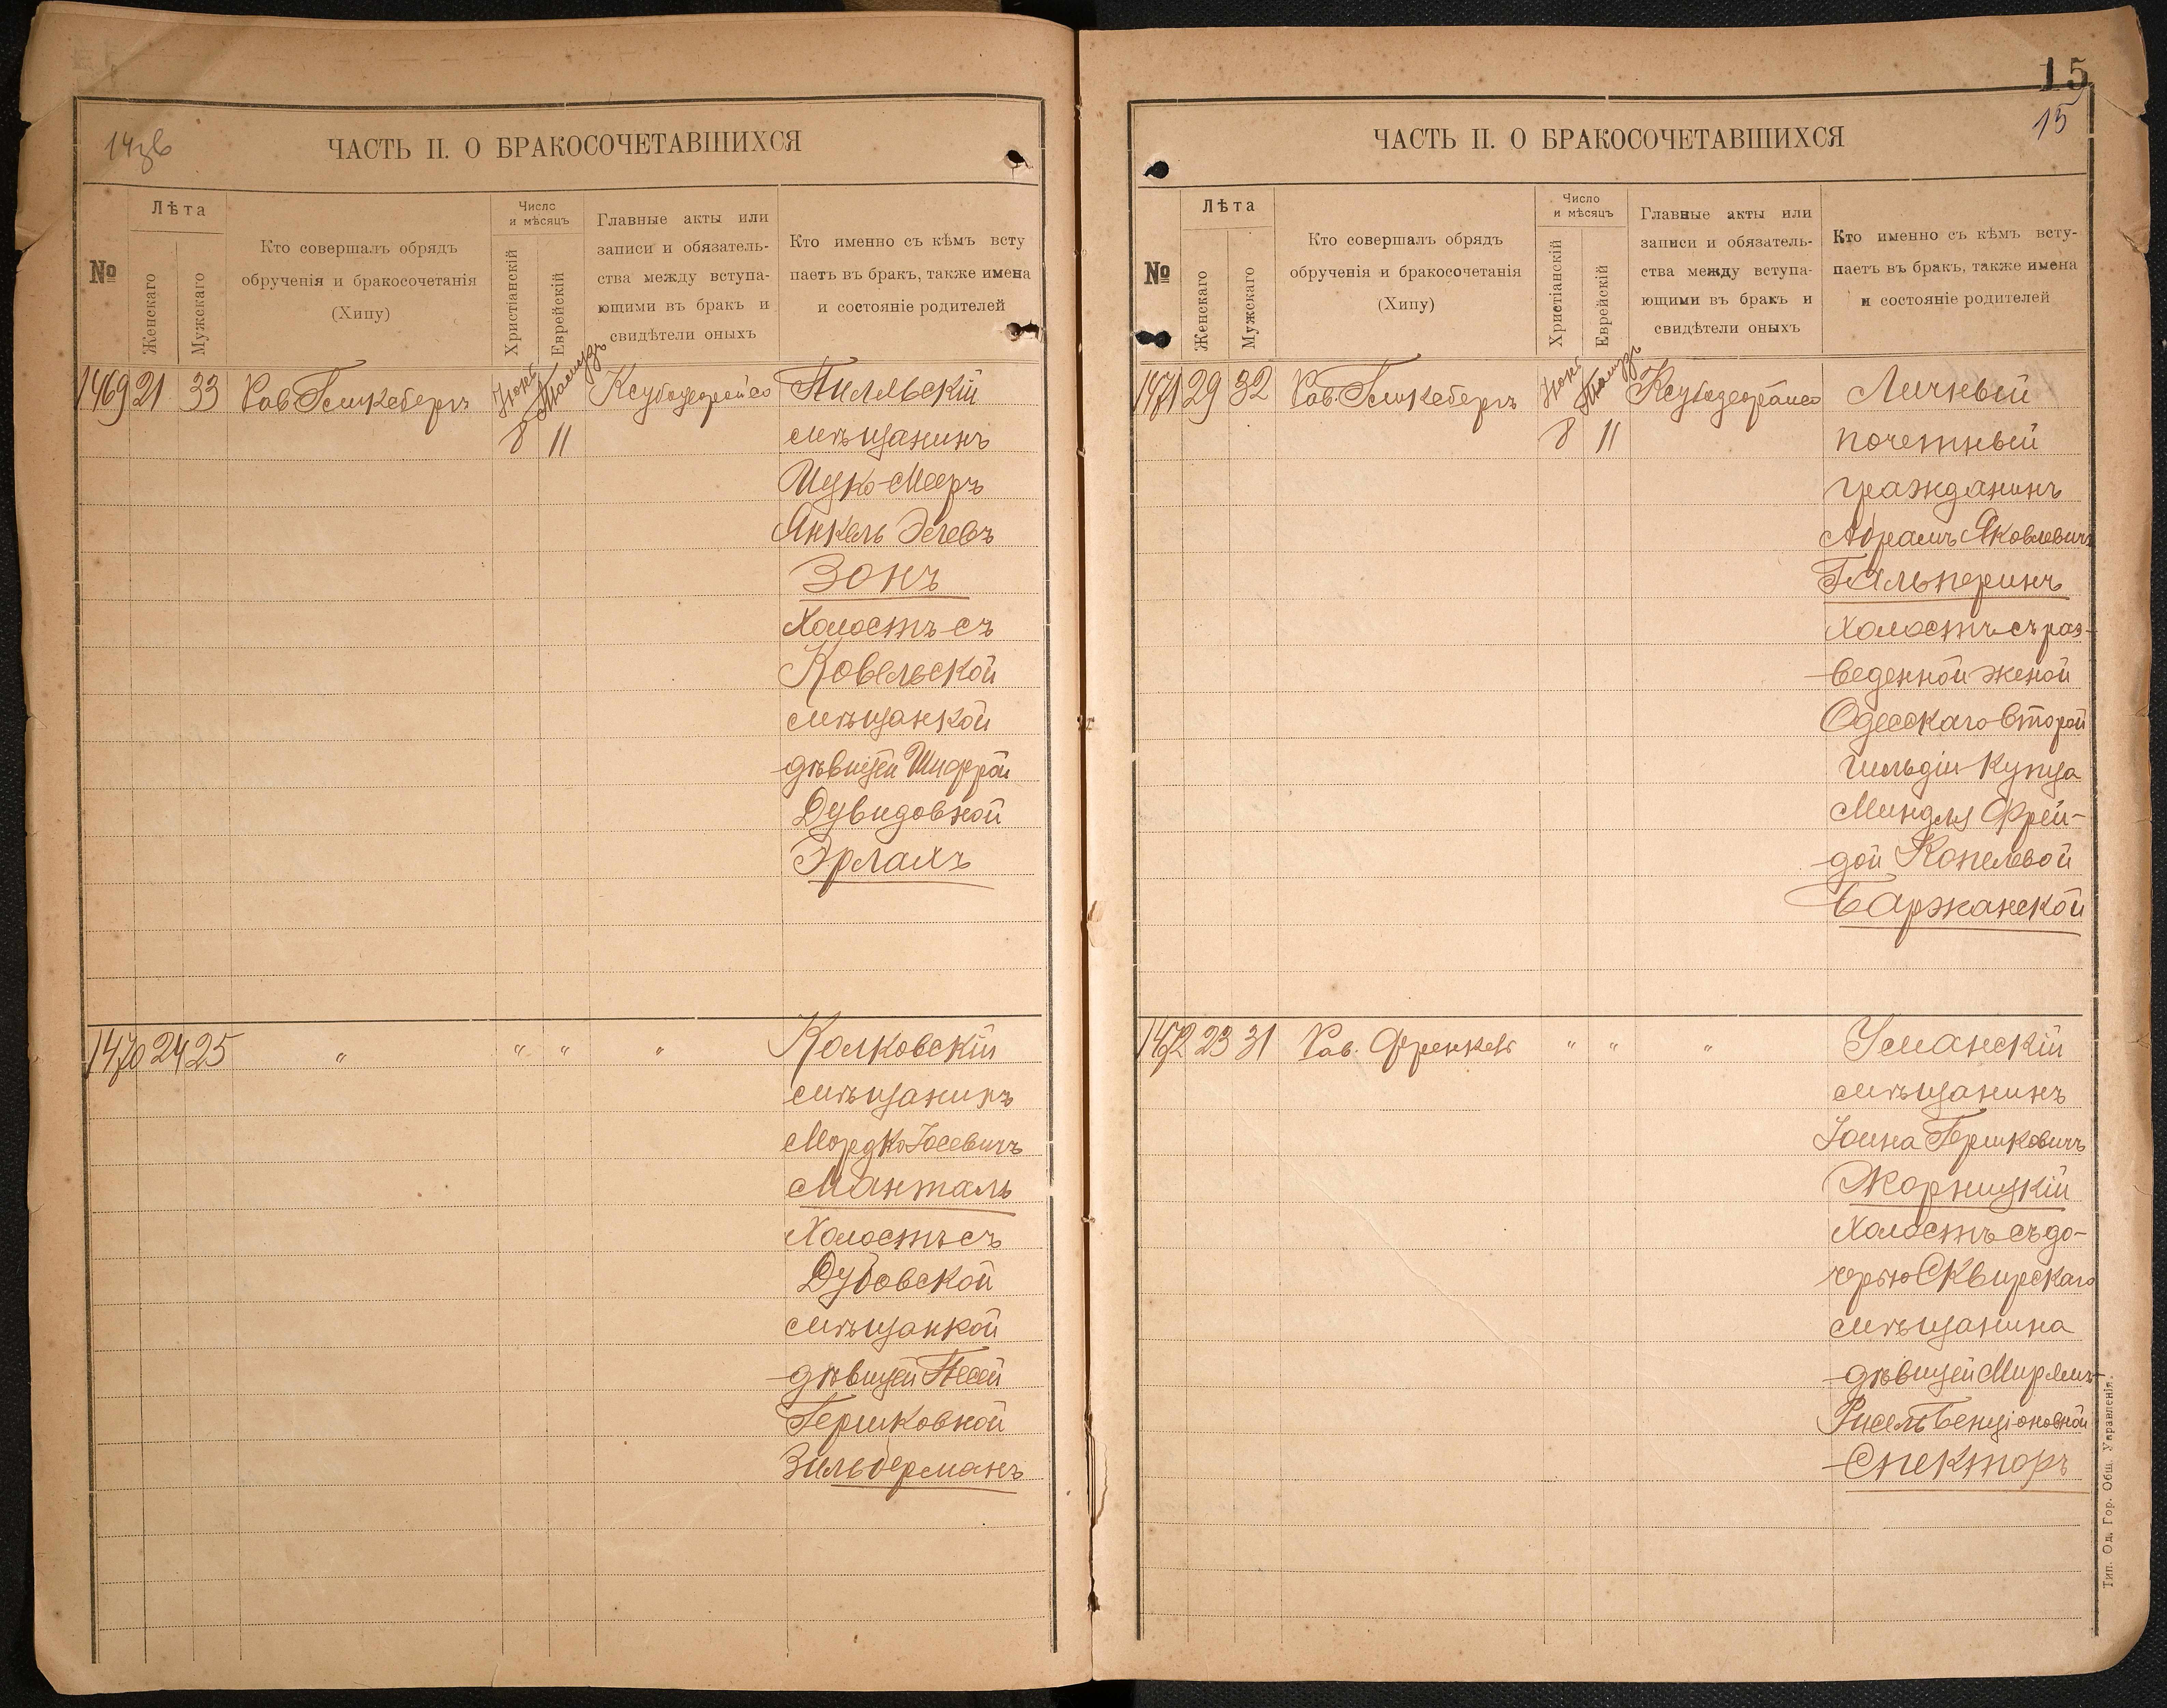 14зв
ЧАСТЬ II. О БРАКОСОЧЕТАВШИХСЯ
№
Лѣта
Женскаго
Мужскаго
Кто совершалъ обрядъ
обрученія и бракосочетанія
(Хипу)
Число
и мѣсяцъ
Христіанскій
Еврейскій
Главные акты или
записи и обязатель-
ства между вступа-
ющими въ бракъ и
свидѣтели оныхъ
Кто именно съ кѣмъ всту
паетъ въ бракъ, также имена
и состояніе родителей
1469 21 33 Рав.
8 11
Пилльскій
мѣщанинъ
Ицко-Меер
Янкель
Зонъ
Холостъ съ
Ковельской
мѣщанкой
дѣвицей Шифрой
Дувидовной
Эрлахъ
1470 24 25 " " " "
Колковскій
мѣщанинъ
Мордко Іосевичъ
Манталь
Холостъ съ
Дубовской
мѣщанкой
дѣвицей Песей
Гершковной
Зильберманъ
15
15
ЧАСТЬ II. О БРАКОСОЧЕТАВШИХСЯ
№
Лѣта
Женскаго
Мужскаго
Кто совершалъ обрядъ
обрученія и бракосочетанія
(Хипу)
Число
и мѣсяцъ
Христіанскій
Еврейскій
Главные акты или
записи и обязатель-
ства между вступа-
ющими въ бракъ и
свидѣтели оныхъ
Кто именно съ кѣмъ всту-
паетъ въ бракъ, также имена
и состояніе родителей
1471 29 32 Рав.
8 11
Личный
почетный
гражданинъ
Абрамъ Яковлевичъ
Гальперинъ
Холостъ съ раз-
веденной женой
Одесскаго второй
гильдіи купца
Миндля Фрей-
дой Копелевой
Баржанской
1472 23 31 Рав. " " "
Уманскій
мѣщанинъ
Іоина Гершковичъ
Жорницкій
Холостъ съ до-
черью Сквирскаго
мѣщанина
дѣвицей Мирямъ-
Рисель Бенціоновной
Спекторъ
Тип. Од. Гор. Общ. Управленія.